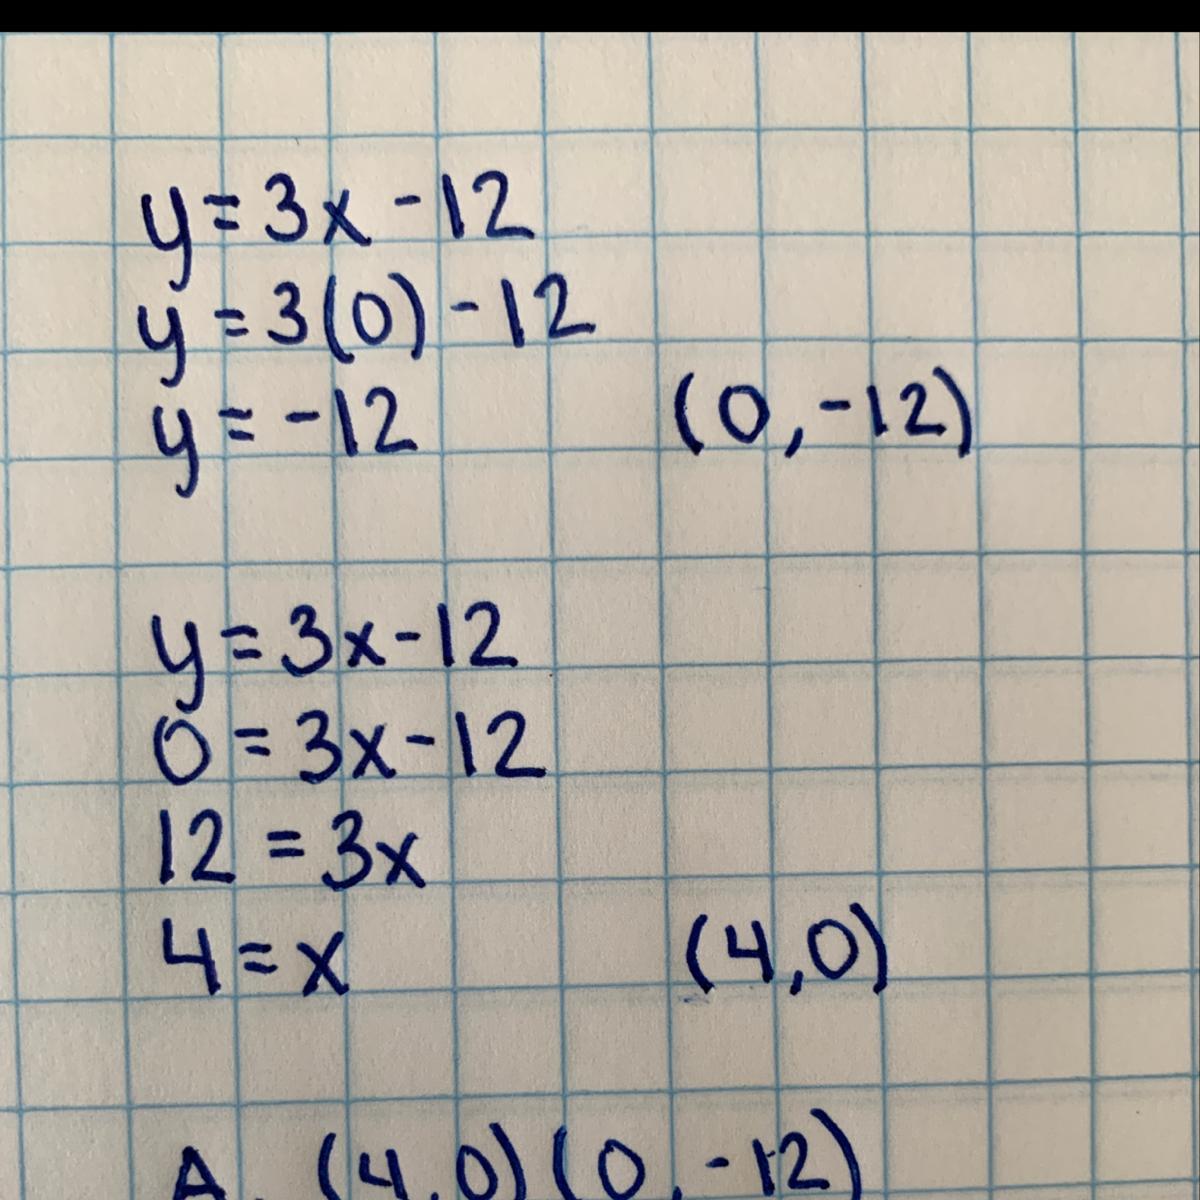 y = 3x - 12
y = 3(0) - 12
y = -12 (0, -12)
y = 3x - 12
0 = 3x - 12
12 = 3x
4 = x (4,0)
A. (4,0) (0, -12)